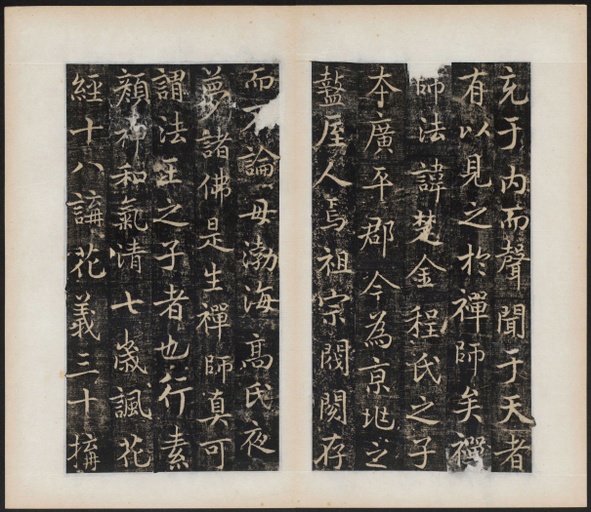 充于内而聲聞于天者
有以見之扵禪師矣禪
師法諱楚金程氏之子
本廣平郡今為京兆之
盩厔人焉祖宗閥閱存
而不論母渤海高氏夜
夢諸佛是生禪師真可
謂法王之子者也行素
顏神和氣清七歲諷花
經十八講花義三十搆